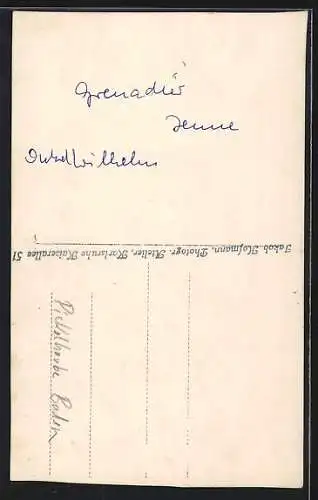 Grenadier
Jenne
Onkel Wilhelm
Jakob Hofmann, Photogr. Atelier, Karlsruhe Kaiserallee 51
Baden